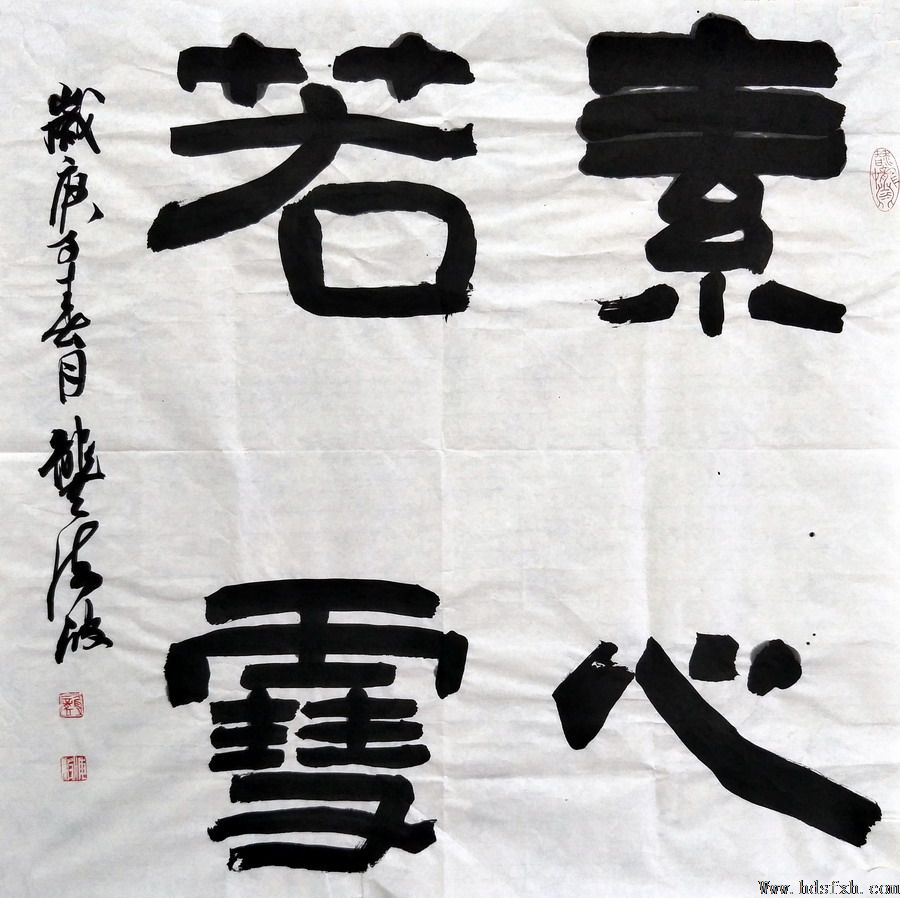 素心
若雪
歲庚子春月龔海波
Www.hdsfxh.com